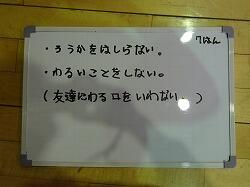 7はん
・ろうかをはしらない。
・わるいことをしない。
(友達にわる口をいわない。)